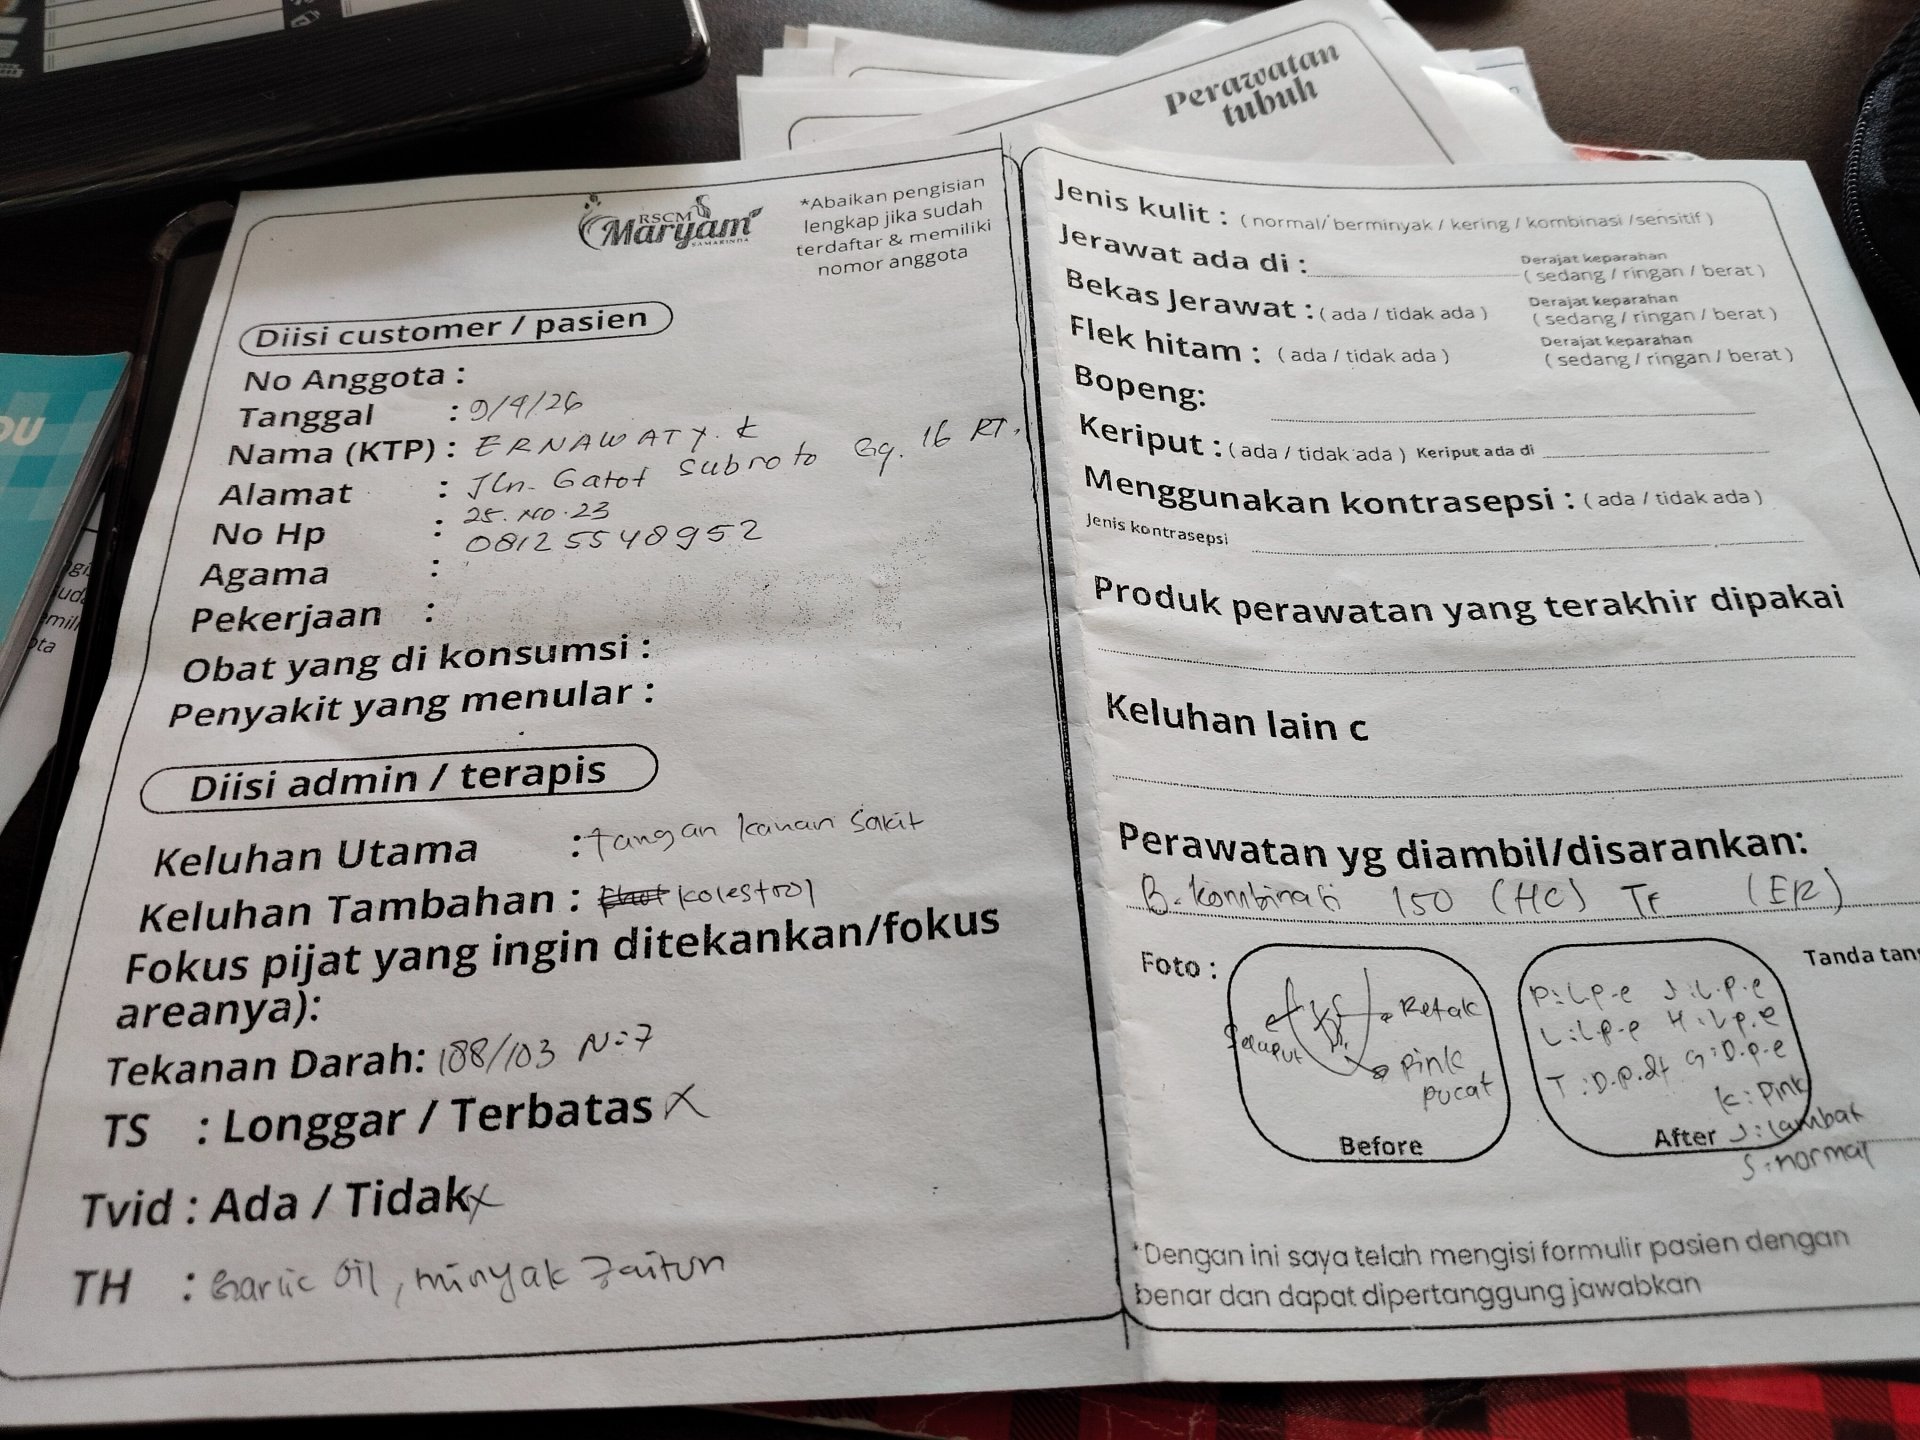 Perawatan
tubuh
RSCM
Maryam
SAMARINDA
*Abaikan pengisian
lengkap jika sudah
terdaftar & memiliki
nomor anggota
Diisi customer / pasien
No Anggota :
Tanggal : 9/4/26
Nama (KTP) : ERNAWATY. K
Alamat : Jln. Gatot Subroto Gg. 16 RT.
25. NO. 23
No Hp : 08125548952
Agama :
Pekerjaan :
Obat yang di konsumsi :
Penyakit yang menular :
Diisi admin / terapis
Keluhan Utama : tangan kanan Sakit
Keluhan Tambahan : kolestrol
Fokus pijat yang ingin ditekankan/fokus
areanya):
Tekanan Darah: 188/103 N:7
TS : Longgar / Terbatas X
Tvid : Ada / Tidak X
TH : Garlic Oil, minyak Zaitun
Jenis kulit : ( normal/ berminyak / kering / kombinasi /sensitif )
Jerawat ada di : Derajat keparahan
( sedang / ringan / berat )
Bekas Jerawat : ( ada / tidak ada ) Derajat keparahan
( sedang / ringan / berat )
Flek hitam : ( ada / tidak ada ) Derajat keparahan
( sedang / ringan / berat )
Bopeng:
Keriput : ( ada / tidak ada ) Keriput ada di
Menggunakan kontrasepsi : ( ada / tidak ada )
Jenis kontrasepsi
Produk perawatan yang terakhir dipakai
Keluhan lain c
Perawatan yg diambil/disarankan:
B. kombinasi 150 (HC) TF (ER)
Foto :
Selaput
Retak
Pink
pucat
Before
P:L.p.e J:L.p.e
L:L.p.e H:L.p.e
T:D.p.dt G:D.p.e
K:Pink
J:lambat
S:normal
After
Tanda tang
*Dengan ini saya telah mengisi formulir pasien dengan
benar dan dapat dipertanggung jawabkan